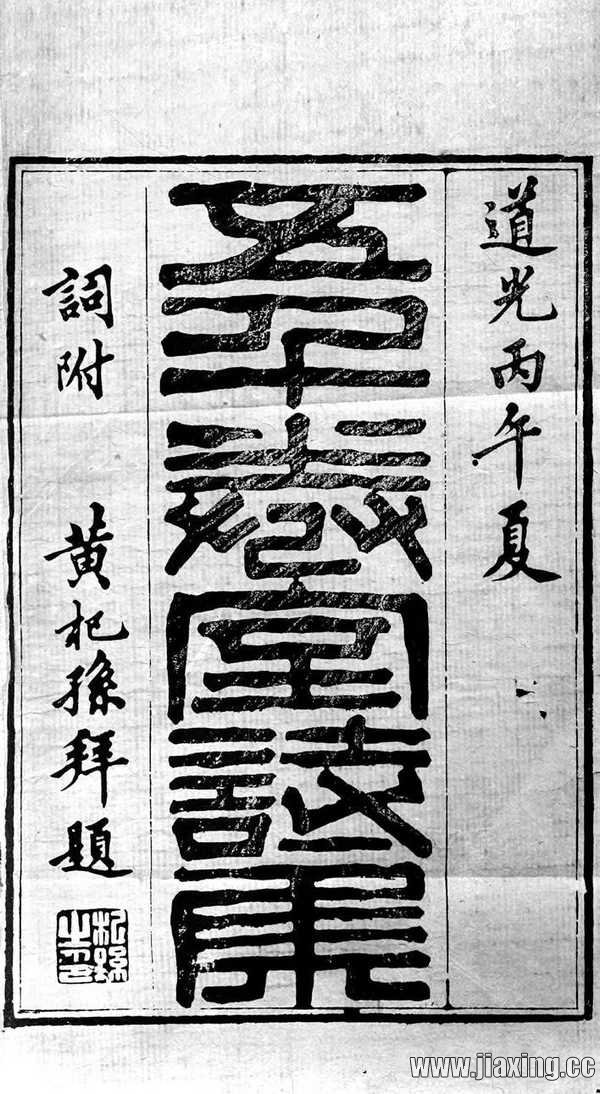 道光丙午夏
五千卷室詩集
詞附 黄杞孫拜題
杞孫之印
www.jiaxing.cc